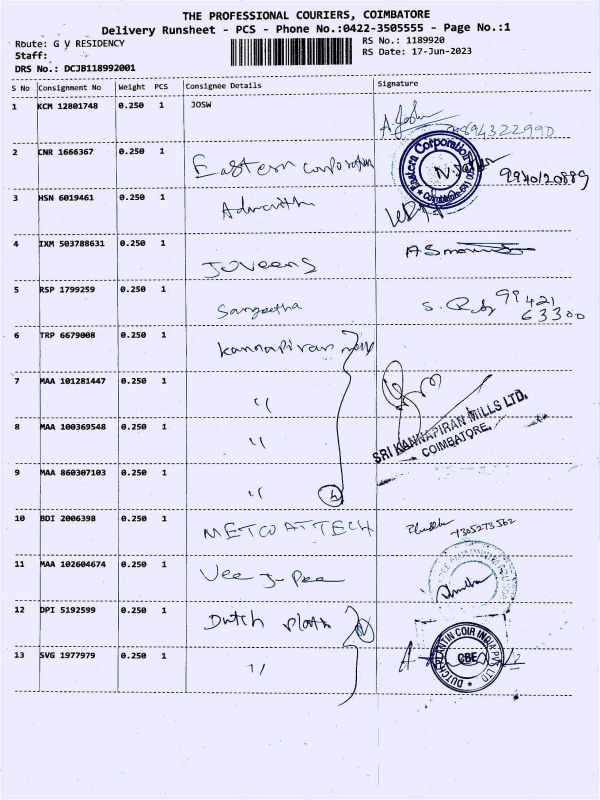 THE PROFESSIONAL COURIERS, COIMBATORE
Delivery Runsheet - PCS - Phone No.:0422-3505555 - Page No.:1
Route: G V RESIDENCY
RS No.: 1189920
Staff:
RS Date: 17-Jun-2023
DRS No.: DCJB118992001
S No Consignment No Weight PCS Consignee Details Signature
1 KCM 12801748 0.250 1 JOSW
9894322990
2 CNR 1666367 0.250 1 Eastern Corporation
Eastern Corporation
9940120889
3 HSN 6019461 0.250 1
4 IXM 503788631 0.250 1 JOVEENS
5 RSP 1799259 0.250 1 Sangeetha
99421
63300
6 TRP 6679008 0.250 1 Kannapiran
7 MAA 101281447 0.250 1 "
SRI KANNAPIRAN MILLS LTD.
COIMBATORE.
8 MAA 100369548 0.250 1 "
9 MAA 860307103 0.250 1 " 4
10 BDI 2006398 0.250 1 METCO ATTECH
7305273562
11 MAA 102604674 0.250 1 Vee Jee Pee
12 DPI 5192599 0.250 1 Dutch Plath
DUTCH PLANTIN COIR INDIA PVT LTD
CBE
13 SVG 1977979 0.250 1 "